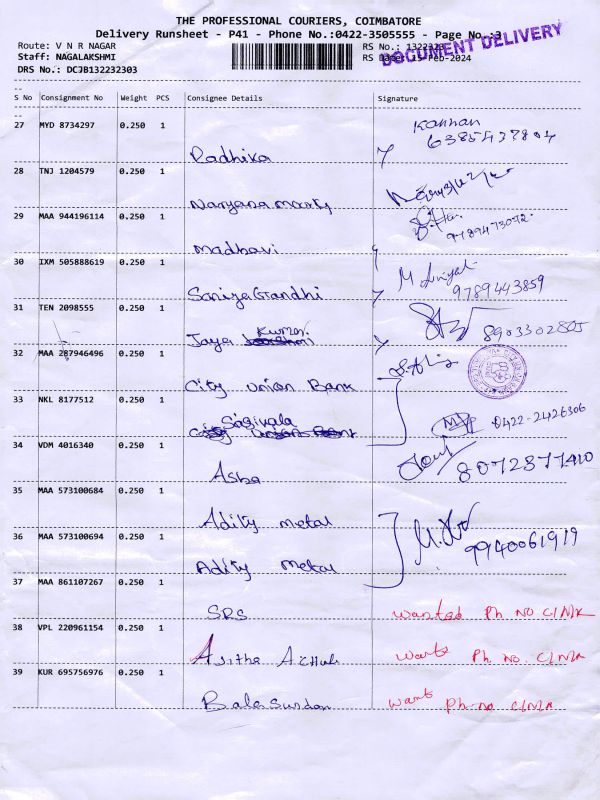 THE PROFESSIONAL COURIERS, COIMBATORE
Delivery Runsheet - P41 - Phone No.:0422-3505555 - Page No.:3
DOCUMENT DELIVERY
Route: V N R NAGAR
RS No.: 1322323
Staff: NAGALAKSHMI
RS Date: 15-Feb-2024
DRS No.: DCJB132232303
S No Consignment No Weight PCS Consignee Details Signature
27 MYD 8734297 0.250 1
Kannan
6385437804
Radhika
28 TNJ 1204579 0.250 1
Naryana moorty
29 MAA 944196114 0.250 1
9789473092
madhavi
30 IXM 505888619 0.250 1
9789443859
Soniya Grandhi
31 TEN 2098555 0.250 1
8903302805
Jaya Kumar
32 MAA 287946496 0.250 1
City Union Bank
33 NKL 8177512 0.250 1
0422-2426306
34 VDM 4016340 0.250 1
8072877410
Asha
35 MAA 573100684 0.250 1
Adity metal
36 MAA 573100694 0.250 1
9940061919
Adity metal
37 MAA 861107267 0.250 1
SRS
wanted Ph No C/N/A
38 VPL 220961154 0.250 1
Ajitha
want Ph. No. C/N/A
39 KUR 695756976 0.250 1
want Ph-no C/N/A
Bala